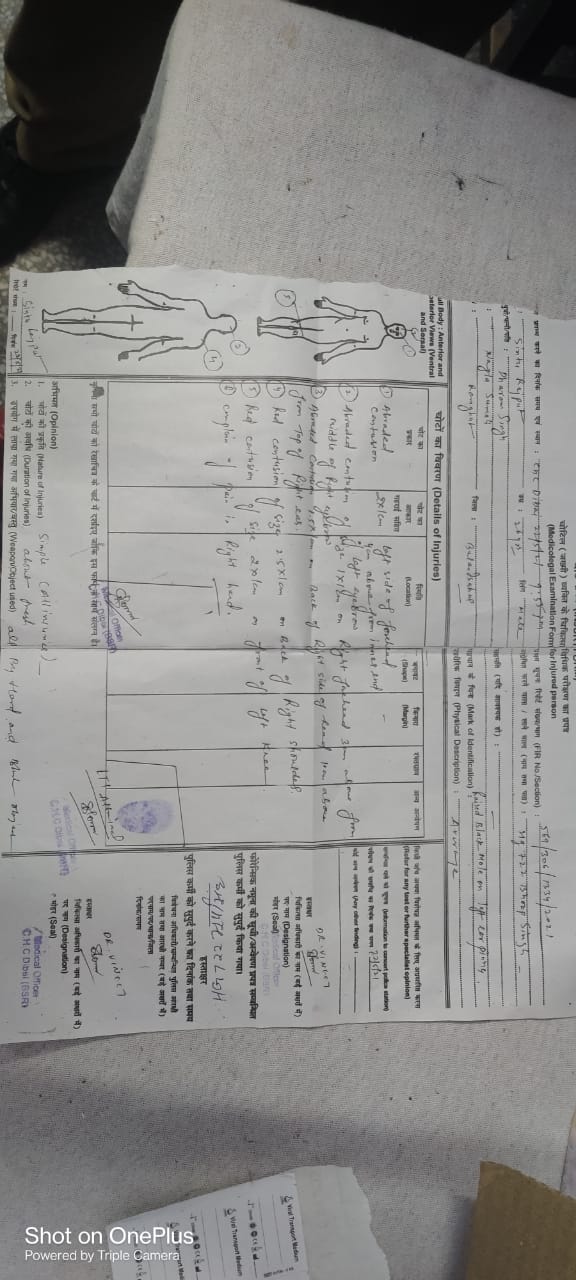 चोटिल (जख्मी) व्यक्ति के चिकित्सा विधिक परीक्षण का प्रपत्र
(Medicolegal Examination Form for Injured person)
प्राप्त करने का दिनांक समय एवं स्थान : CHC Dibai 22/5/21 9:55 pm
सूचना रिपोर्ट संख्या/धारा (FIR No./Section) :
Sintu Rajput 26 yrs लिंग Male
करने वाला / लाने वाला (नाम तथा पता) : Hg 722 Bhoop Singh
Dharam Singh
सहमति (यदि आवश्यक हो) :
Nagla
Ramghat जिला : Bulandshahar
पहचान के चिन्ह (Mark of Identification) : Raised Black Mole on left ear pinna
शारीरिक विवरण (Physical Description) : Average
Full Body : Anterior and
Posterior Views (Ventral
and Dorsal)
चोटों का विवरण (Details of Injuries)
चोट का प्रकार
चोट का आकार गहराई सहित
स्थिति (Location)
बनावट (Shape)
किनारा (Margin)
रक्तस्राव
अन्य अन्वेषण
① Abraded Contusion 2x1cm Left side of forehead 4cm above from inner end of left eyebrow
② Abraded contusion of size 1x1cm on Right forehead 3cm above from
middle of Right eyebrow
③ Abraded Contusion 1.5x1cm on Back of Right side of head above
from Top of Right ear.
④ Red contusion of size 2.5x1cm on Back of Right shoulder.
⑤ Red contusion of size 2x1cm on front of Left Knee
⑥ complain of pain in Right hand.
Medical Officer
C.H.C Dibai (BSR)
LTI Attested
Medical Officer
C.H.C Dibai (BSR)
सभी चोटों को रेखाचित्र के चार्ट में दर्शाइए जोकि इस फार्म के साथ संलग्न है।
अभिमत (Opinion)
1. चोटों की प्रकृति (Nature of Injuries) Simple (All injuries)
2. चोटों की अवधि (Duration of Injuries) about fresh
3. उपयोग में लाया गया गया अभियार/वस्तु (Weapon/Object used) all By Hard and Blunt object
नाम : Sintu Rajput
रिपोर्ट संख्या : दिनांक
किसी जांच अथवा विशेषज्ञ अभिमत के लिए अग्रसारित करना
(Refor for any test or further specialist opinion)
सम्बन्धित थाने को सूचना (Information to concert police station)
परीक्षण की समाप्ति का दिनांक तथा समय 22/5/21
कोई अन्य अन्वेषण (Any other finding) :
DR. VINEET
हस्ताक्षर
चिकित्सा अधिकारी का नाम (बड़े अक्षरों में)
पद नाम (Designation)
मोहर (Seal)
Medical Officer
C.H.C Dibai (BSR)
फोरेन्सिक नमूना की सूची/अन्वेषण प्रपत्र सम्बन्धित
पुलिस कर्मी को सुपुर्द किया गया।
हस्ताक्षर
पुलिस कर्मी को सुपुर्द करने का दिनांक तथा समय
विवेचना अधिकारी/सम्बन्धित पुलिस आरक्षी
का नाम तथा आरक्षी नम्बर (बड़े अक्षरों में)
पदनाम/पद/थाना/जिला
दिनांक/समय
DR. VINEET
हस्ताक्षर
चिकित्सा अधिकारी का नाम (बड़े अक्षरों में)
पद नाम (Designation)
मोहर (Seal)
Medical Officer
C.H.C Dibai (BSR)
Viral Transport Medium
Viral Transport Medium
Shot on OnePlus
Powered by Triple Camera